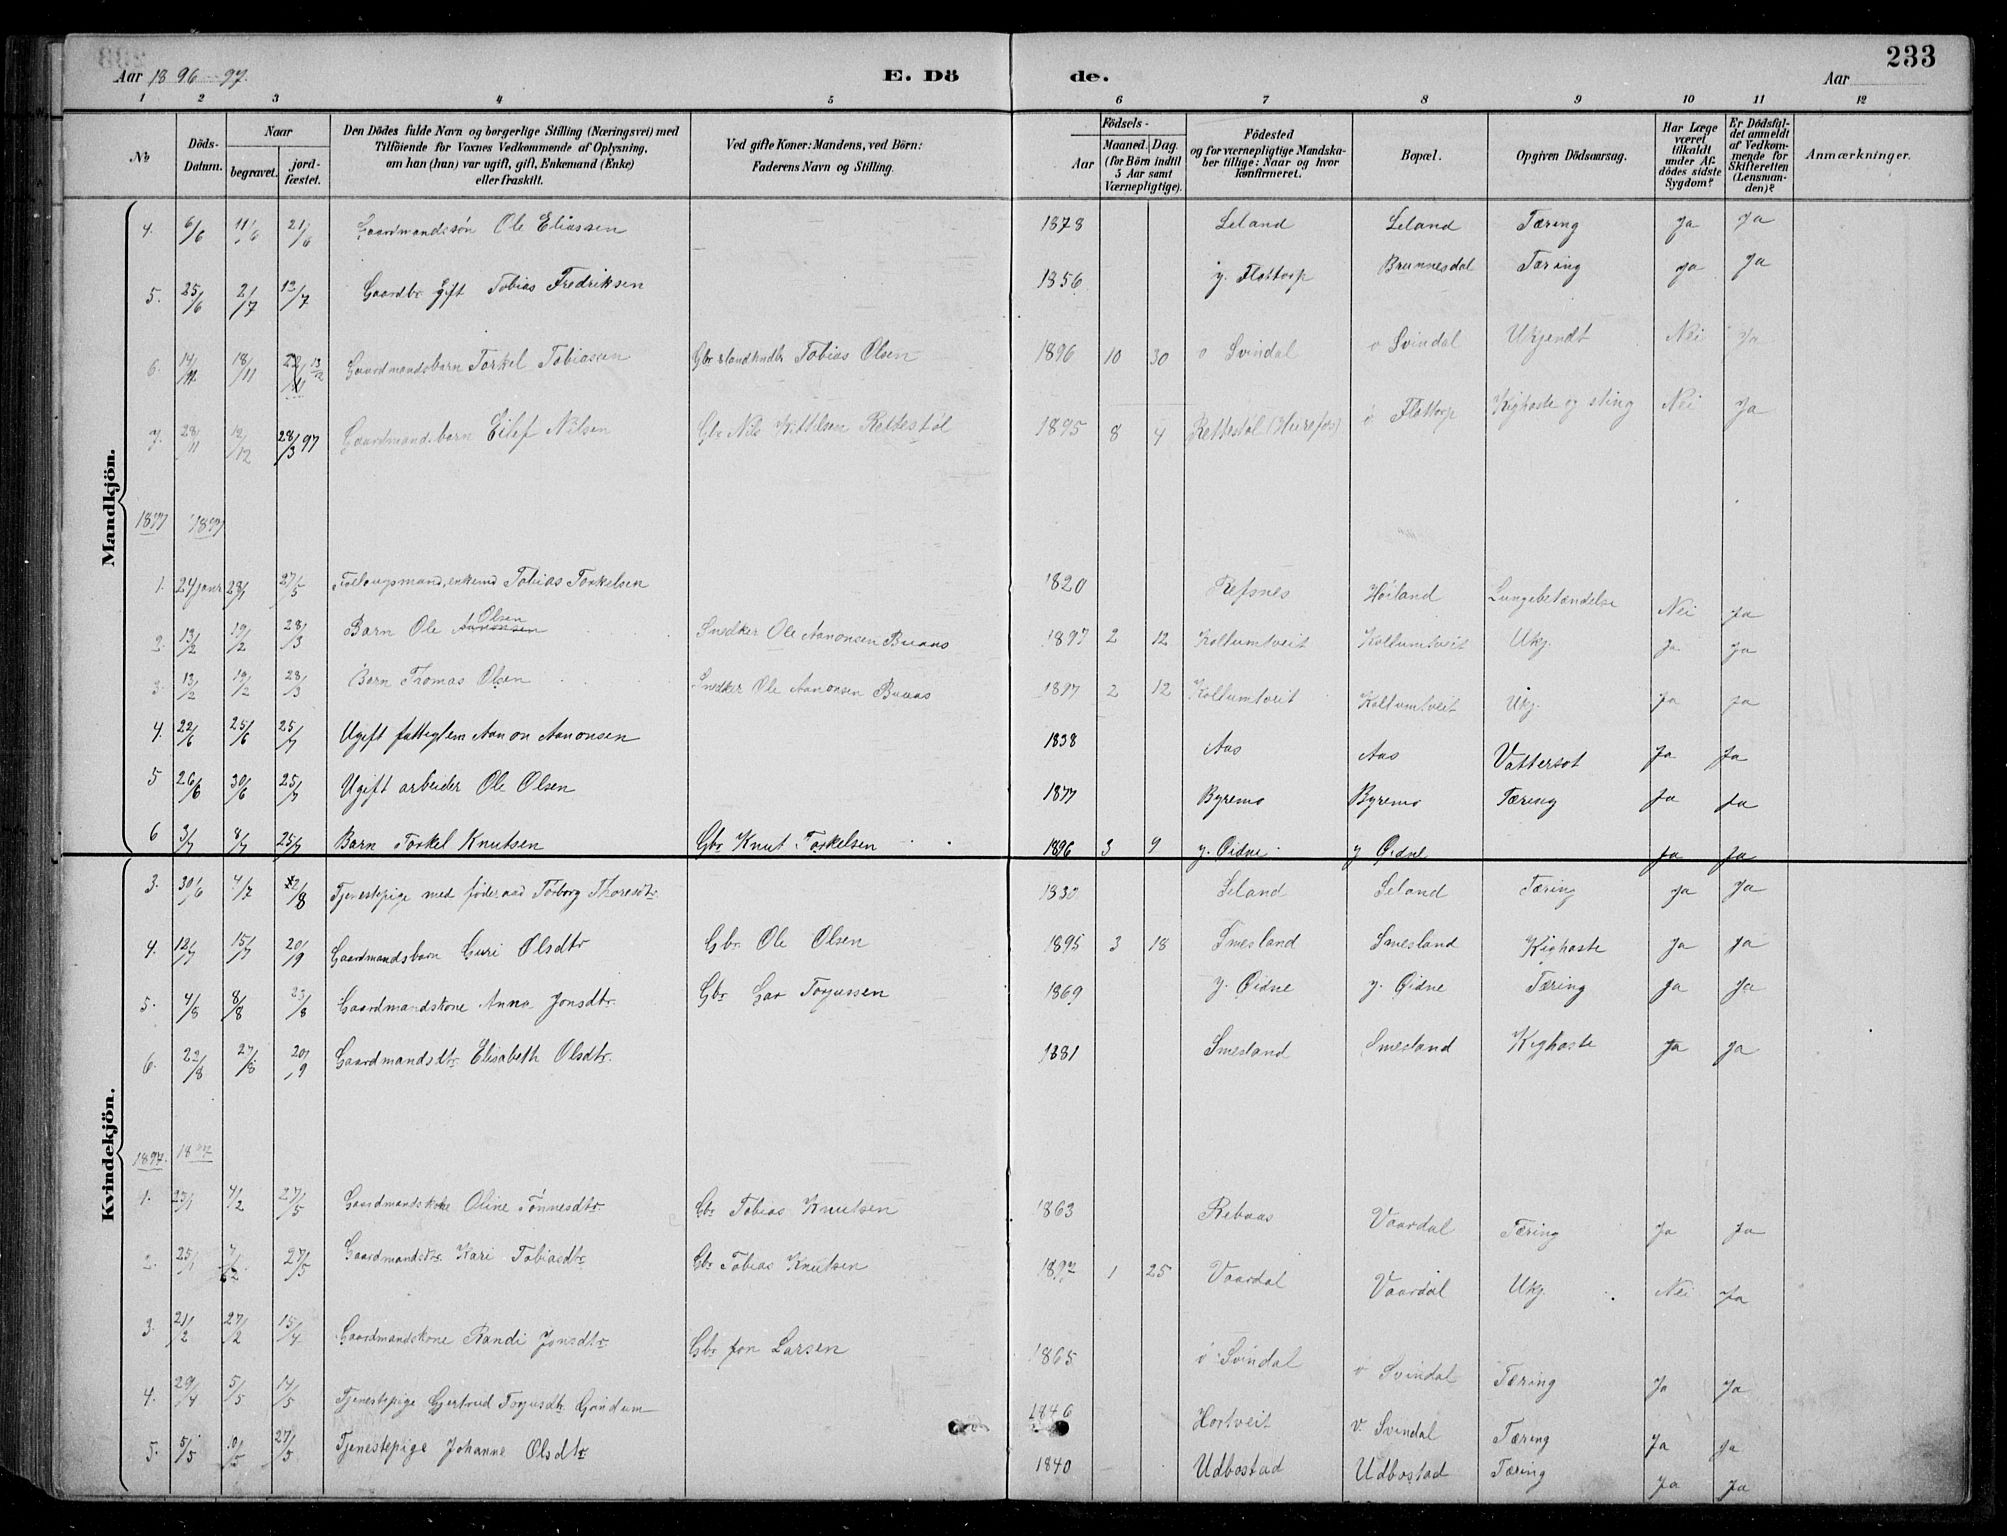 Aar 1896-97. E. Dö de. Aar 233
1 2 3 4 5 6 7 8 9 10 11 12
No Döds-Datum. Naar begravet. jordfæstet. Den Dödes fulde Navn og borgerlige Stilling (Næringsvei) med Tilföiende for Voxnes Vedkommende af Oplysning, om han (hun) var ugift, gift, Enkemand (Enke) eller fraskilt. Ved gifte Koner: Mandens, ved Börn: Faderens Navn og Stilling. Födsels- Aar Maaned. Dag. (for Börn indtil 5 Aar samt Værnepligtige). Födested og for værnepligtige Mandskaber tillige: Naar og hvor konfirmeret. Bopæl. Opgiven Dödsaarsag. Har Læge været tilkaldt under Afdödes sidste Sygdom? Er Dödsfaldet anmeldt af Vedkommende for Skifteretten (Lensmanden)? Anmærkninger.
Mandkjön.
4. 6/6 11/6 21/6 Gaardmandssön Ole Eliassen 1878 Leland Leland Tæring Ja Ja
5. 25/6 2/7 12/7 Gaardbr. gift Tobias Fredriksen 1856 y. Flottorp Brunnesdal Tæring Ja Ja
6. 14/11 18/11 13/12 Gaardmandsbarn Torkel Tobiassen Gbr & landhndlr Tobias Olsen 1896 10 30 ö Svindal ö Svindal Ukjendt Nei Ja
7. 28/11 12/12 28/3 97 Gaardmandsbarn Eilef Nilsen Gbr Nils Kittilsen Rettestöl 1895 8 4 Rettestöl (Hurefos) ö Flottorp Kighoste og sting Nei Ja
1897 1897
1. 24 janr 28/1 27/5 Follougsmand, enkemd Tobias Torkelsen 1820 Refsnes Höiland Lungebetændelse Nei Ja
2. 13/2 19/2 28/3 Barn Ole Aanonsen Olsen Snedker Ole Aanonsen Buaas 1897 2 12 Koltumtveit Koltumtveit Ukj. Ja Ja
3. 13/2 19/2 28/3 Barn Thomas Olsen Snedker Ole Aanonsen Buaas 1897 2 12 Koltumtveit Koltumtveit Ukj. Ja Ja
4. 22/6 25/6 25/7 Ugift fattiglem Aanon Aanonsen 1838 Aas Aas Vattersot Ja Ja
5 26/6 30/6 25/7 Ugift arbeider Ole Olsen 1877 Byremo Byremo Tæring Ja Ja
6 3/7 8/7 25/7 Barn Torkel Knutsen Gbr Knut Torkelsen 1896 3 9 y. Øidne y Øidne Ja Ja
Kvindekjön.
3. 30/6 4/7 2/8 Tjenestepige med föderaad Torborg Thoresdtr. 1830 Leland Leland Tæring Ja Ja
4. 12/7 15/7 20/9 Gaardmandsbarn Guri Olsdtr Gbr. Ole Olsen 1895 3 18 Smesland Smesland Kighoste Ja Ja
5. 4/8 8/8 23/8 Gaardmandskone Anna Jonsdtr. Gbr Torjussen 1869 y. Øidne y. Øidne Tæring Ja Ja
6. 22/8 27/8 20/9 Gaardmandsdtr. Elisabeth Olsdtr. 1881 Smesland Smesland Kighoste Ja Ja
1897. 1897
1. 23/1 4/2 27/5 Gaardmandskone Oline Tönnesdtr Gbr Tobias Knutsen 1863 Rebaas Vaardal Tæring Ja Ja
2. 25/1 7/2 27/5 Gaardmandsdtr. Kari Tobiasdtr Gbr Tobias Knutsen 1897 1 25 Vaardal Vaardal Ukj. Nei Ja
3. 21/2 27/2 15/4 Gaardmandskone Randi Jonsdtr Gbr Jon Larsen 1865 ö Svindal ö Svindal Tæring Ja Ja
4. 29/4 5/5 14/5 Tjenestepige Gjertrud Torjusdtr. Grindum 1846 Hortveit v. Svindal Tæring Ja Ja
5. 5/5 10/5 27/5 Tjenestepige Johanne Olsdtr 1840 Udbostad Udbostad Tæring Ja Ja